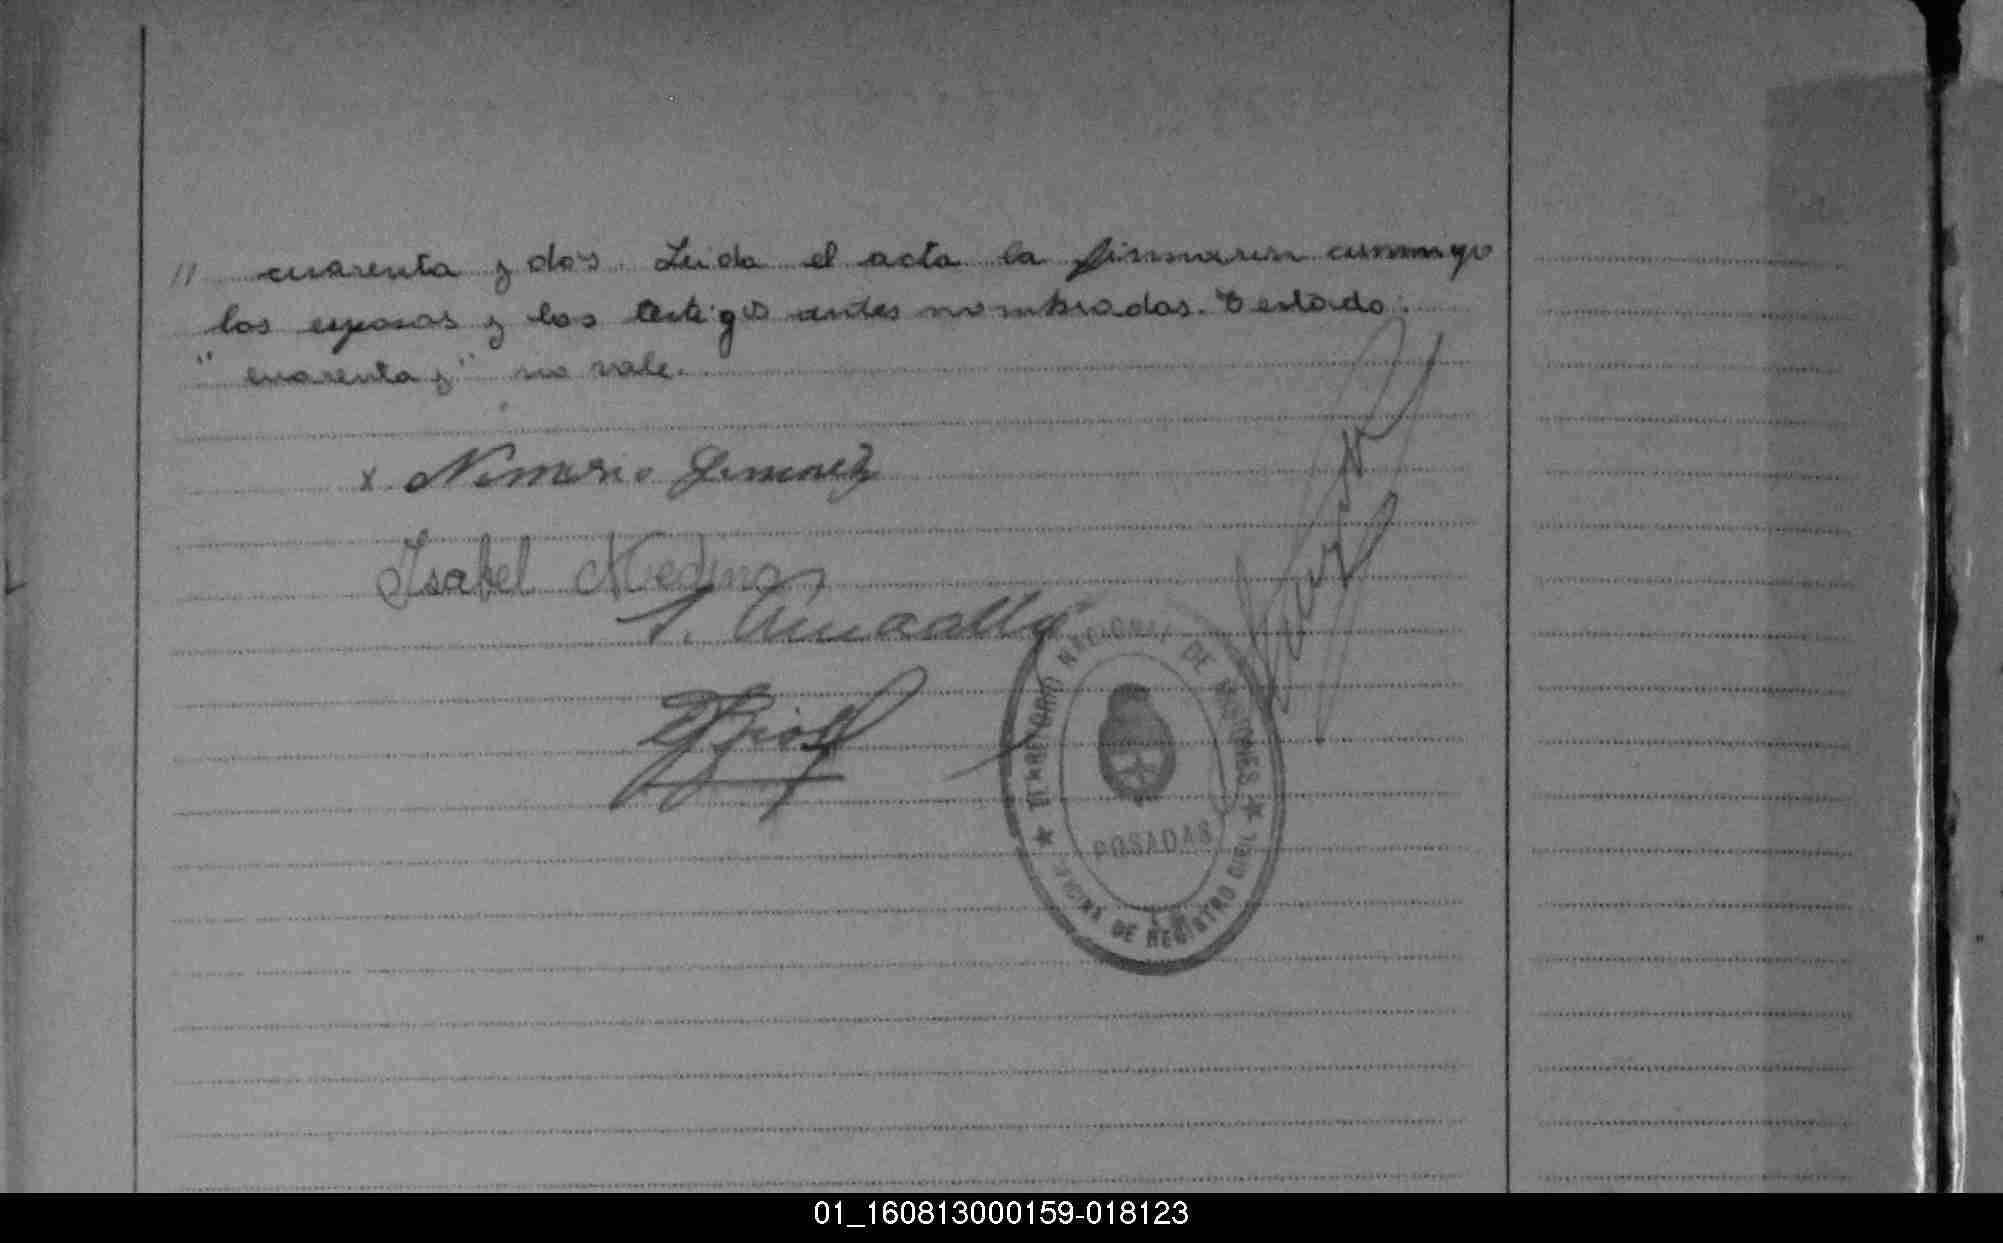 // cuarenta y dos. Leida el acta la firmaron conmigo
los esposos y los testigos antes nombrados. Testado:
"cuarenta y" no vale.
x Nemesio Gimenez
Isabel Medina
TERRITORIO NACIONAL DE MISIONES
POSADAS
OFICINA DE REGISTRO CIVIL
01_160813000159-018123